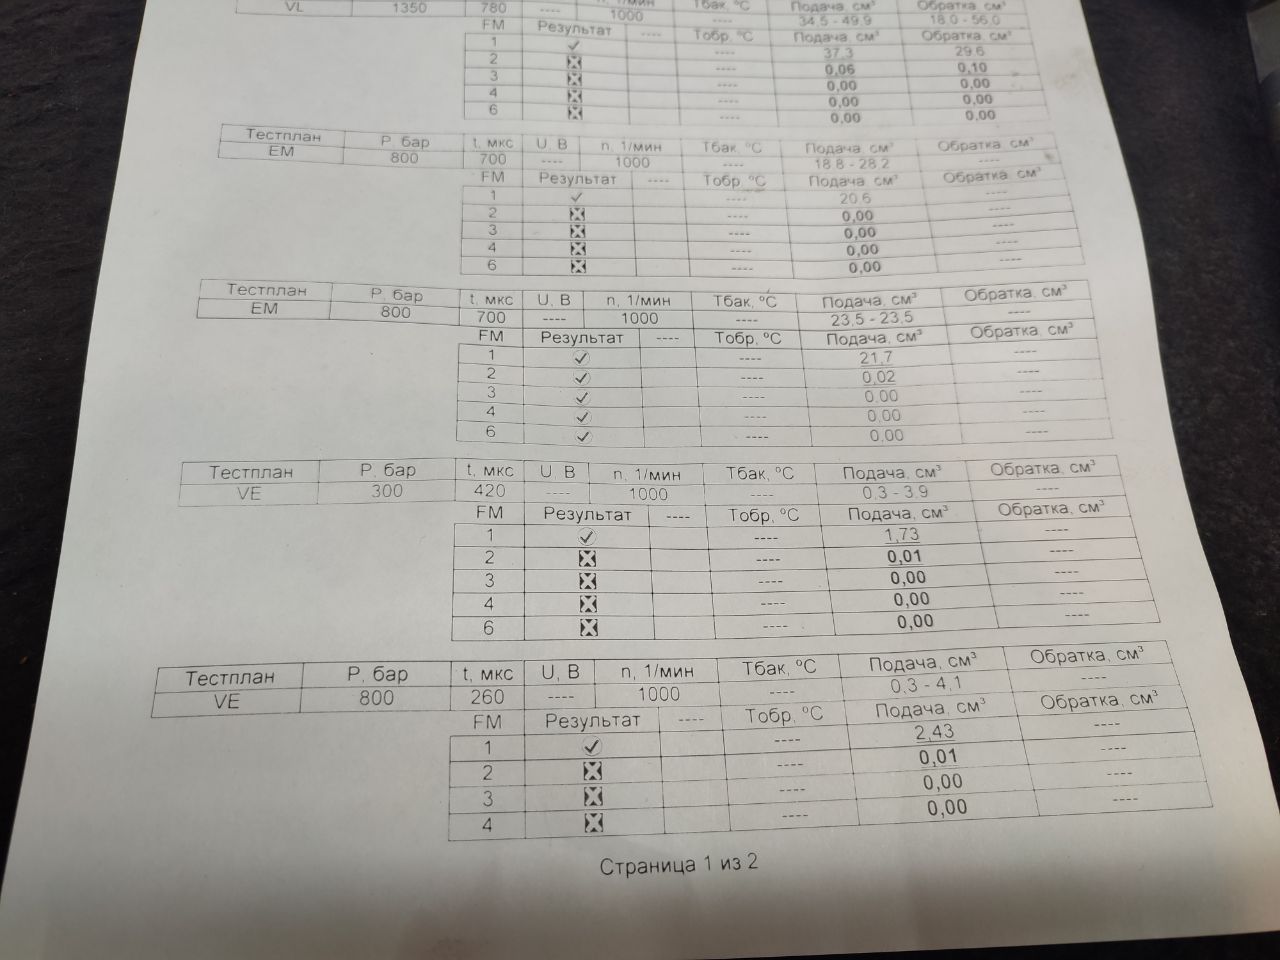 VL 1350 780 ---- 1000 ---- 34,5 - 49,9 18,0 - 56,0
FM Результат ---- Тобр, °C Подача, см³ Обратка, см³
1 ✓ ---- 37,3 29,6
2 ---- 0,06 0,10
3 ---- 0,00 0,00
4 ---- 0,00 0,00
6 ---- 0,00 0,00
Тестплан P, бар t, мкс U, B n, 1/мин Тбак, °C Подача, см³ Обратка, см³
EM 800 700 ---- 1000 ---- 18,8 - 28,2 ----
FM Результат ---- Тобр, °C Подача, см³ Обратка, см³
1 ✓ ---- 20,6 ----
2 ---- 0,00 ----
3 ---- 0,00 ----
4 ---- 0,00 ----
6 ---- 0,00 ----
Тестплан P, бар t, мкс U, B n, 1/мин Тбак, °C Подача, см³ Обратка, см³
EM 800 700 ---- 1000 ---- 23,5 - 23,5 ----
FM Результат ---- Тобр, °C Подача, см³ Обратка, см³
1 ✓ ---- 21,7 ----
2 ✓ ---- 0,02 ----
3 ✓ ---- 0,00 ----
4 ✓ ---- 0,00 ----
6 ✓ ---- 0,00 ----
Тестплан P, бар t, мкс U, B n, 1/мин Тбак, °C Подача, см³ Обратка, см³
VE 300 420 ---- 1000 ---- 0,3 - 3,9 ----
FM Результат ---- Тобр, °C Подача, см³ Обратка, см³
1 ✓ ---- 1,73 ----
2 ---- 0,01 ----
3 ---- 0,00 ----
4 ---- 0,00 ----
6 ---- 0,00 ----
Тестплан P, бар t, мкс U, B n, 1/мин Тбак, °C Подача, см³ Обратка, см³
VE 800 260 ---- 1000 ---- 0,3 - 4,1 ----
FM Результат ---- Тобр, °C Подача, см³ Обратка, см³
1 ✓ ---- 2,43 ----
2 ---- 0,01 ----
3 ---- 0,00 ----
4 ---- 0,00 ----
Страница 1 из 2